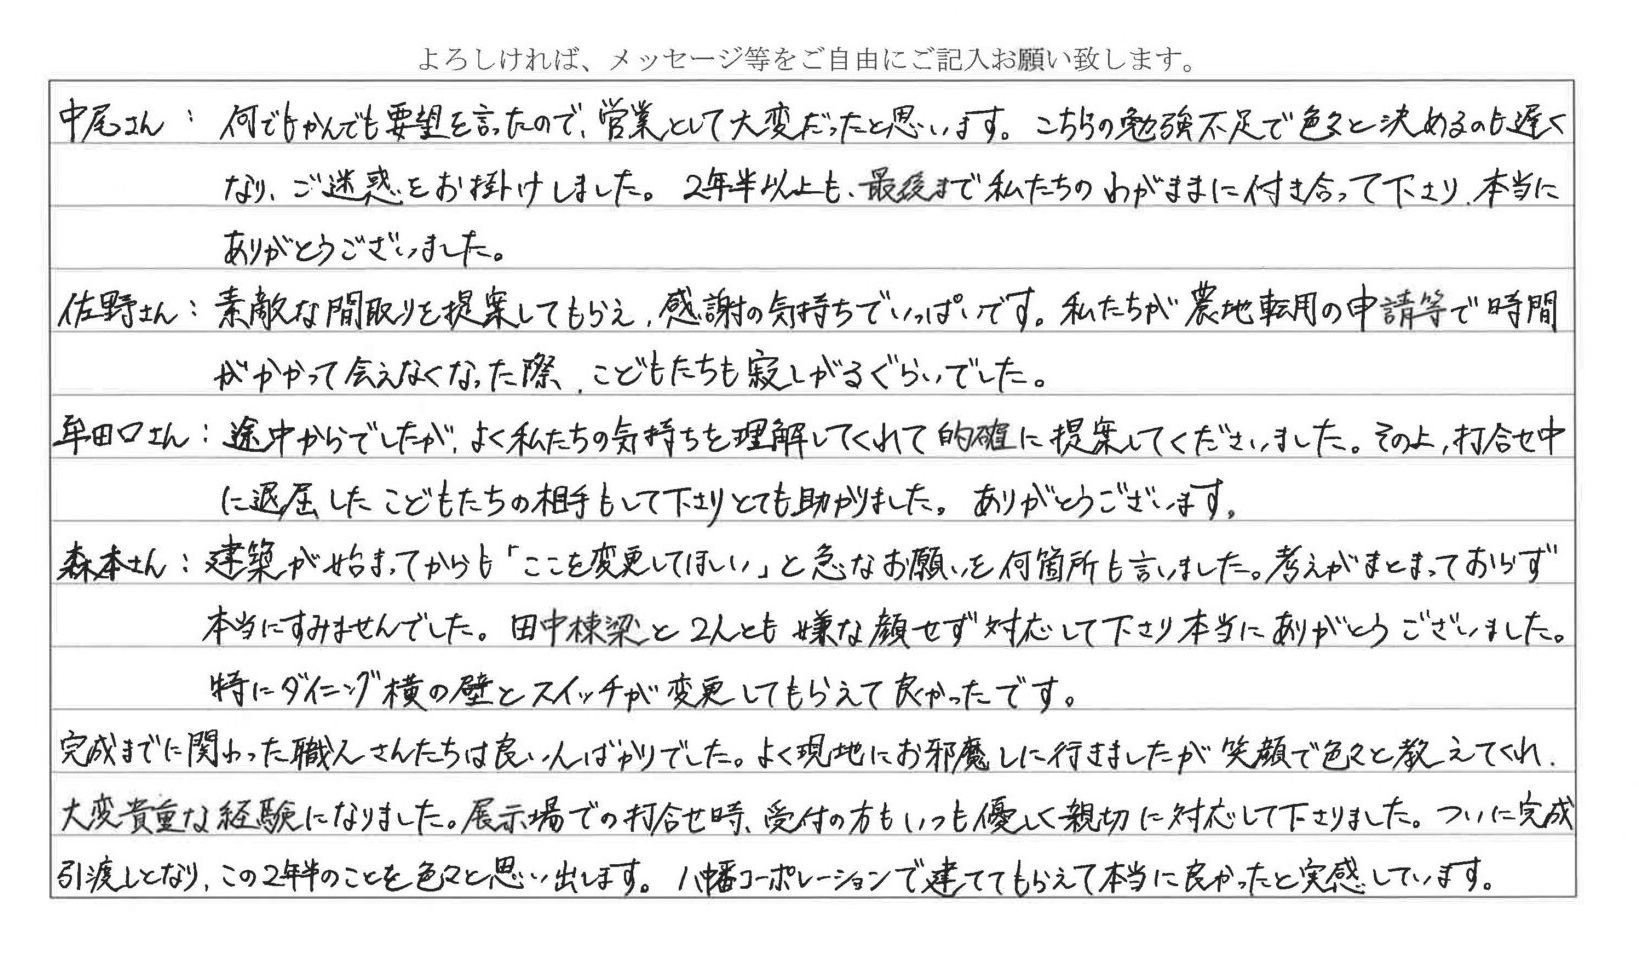 よろしければ、メッセージ等をご自由にご記入お願い致します。
中尾さん： 何でもかんでも要望を言ったので、営業として大変だったと思います。こちらの勉強不足で色々と決めるのも遅く
なり、ご迷惑をお掛けしました。2年半以上も、最後まで私たちのわがままに付き合って下さり、本当に
ありがとうございました。
佐野さん：素敵な間取りを提案してもらえ、感謝の気持ちでいっぱいです。私たちが農地転用の申請等で時間
がかかって会えなくなった際、こどもたちも寂しがるぐらいでした。
牟田口さん：途中からでしたが、よく私たちの気持ちを理解してくれて的確に提案してくださいました。そのよ、打合せ中
に退屈したこどもたちの相手もして下さりとても助かりました。ありがとうございます。
森本さん：建築が始まってからも「ここを変更してほしい」と急なお願いを何箇所も言いました。考えがまとまっておらず
本当にすみませんでした。田中棟梁と2人とも嫌な顔せず対応して下さり本当にありがとうございました。
特にダイニング横の壁とスイッチが変更してもらえて良かったです。
完成までに関わった職人さんたちは良い人ばかりでした。よく現地にお邪魔しに行きましたが笑顔で色々と教えてくれ、
大変貴重な経験になりました。展示場での打合せ時、受付の方もいつも優しく親切に対応して下さりました。ついに完成
引渡しとなり、この2年半のことを色々と思い出します。八幡コーポレーションで建ててもらえて本当に良かったと実感しています。